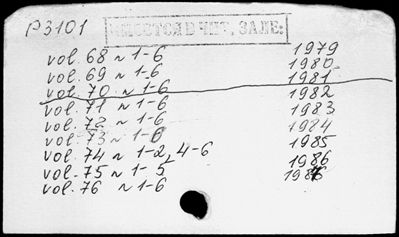 P3101
ИМЕЕТСЯ В ЧИТ. ЗАЛЕ:
vol. 68 N 1-6 1979
vol. 69 N 1-6 1980
vol. 70 N 1-6 1981
vol. 71 N 1-6 1982
vol. 72 N 1-6 1983
vol. 73 N 1-6 1984
vol. 74 N 1-2, 4-6 1985
vol. 75 N 1-5 1986
vol. 76 N 1-6